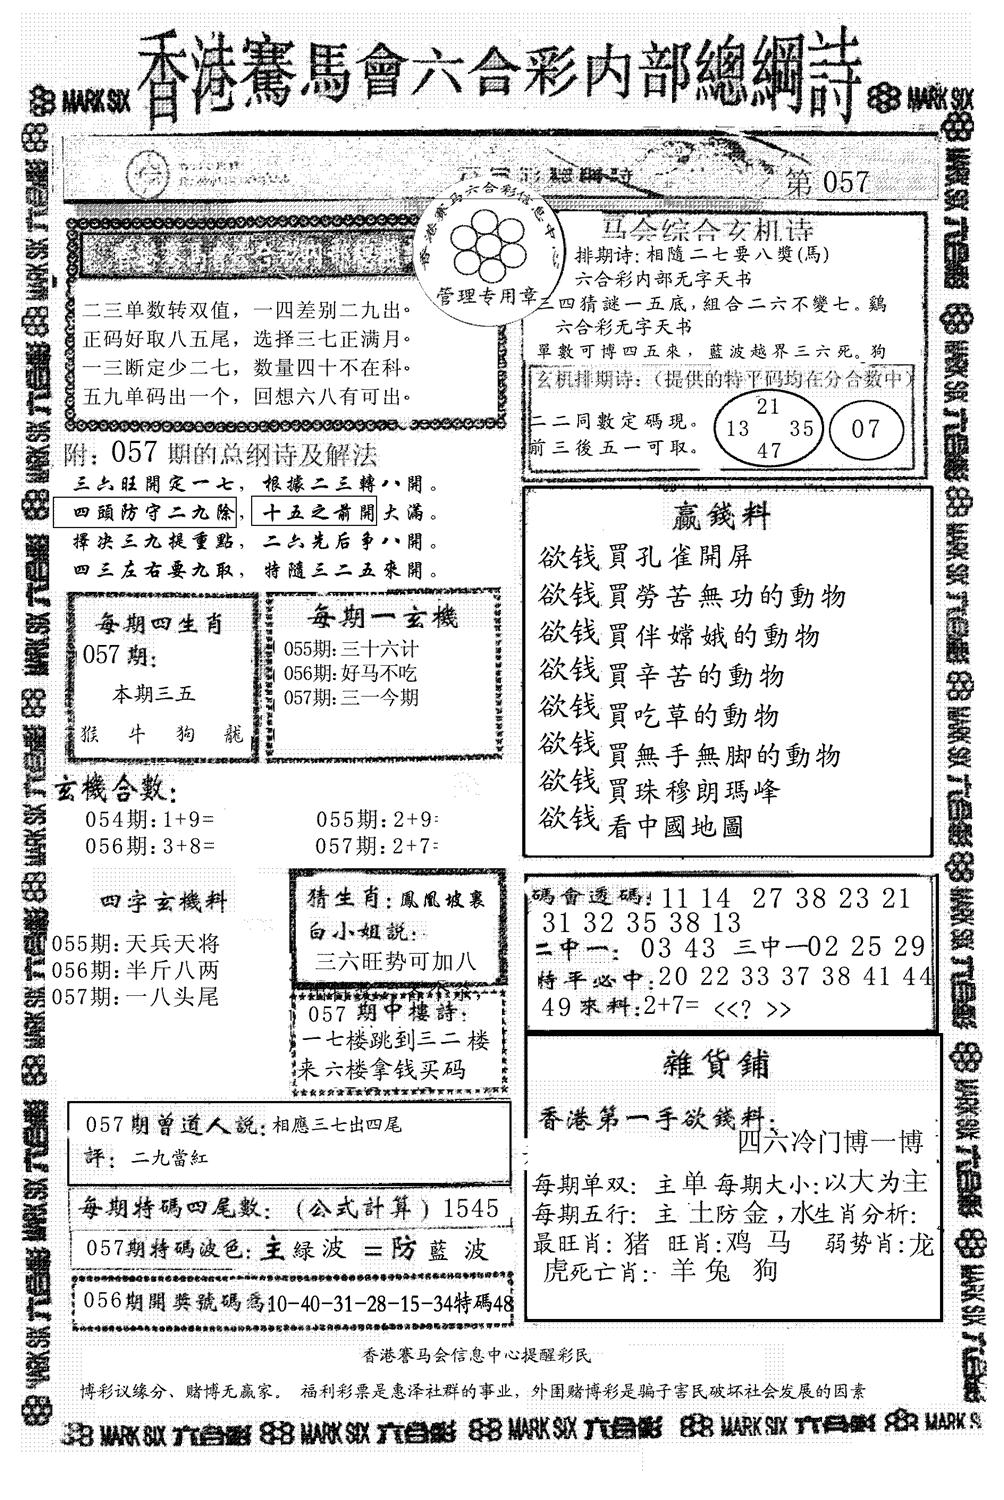 香港騫馬會六合彩内部總綱詩
MARK SIX
MARK SIX
第 057
香港赛马六合彩信息中心
管理专用章
二三单数转双值，一四差别二九出。
正码好取八五尾，选择三七正满月。
一三断定少二七，数量四十不在科。
五九单码出一个，回想六八有可出。
马会综合玄机诗
排期诗: 相隨二七要八獎(馬)
六合彩内部无字天书
三四猜謎一五底，組合二六不變七。鷄
六合彩无字天书
單數可博四五來，藍波越界三六死。狗
玄机排期诗：（提供的特平码均在分合数中）
二二同數定碼現。
前三後五一可取。
21
13 35
47
07
附：057 期的总纲诗及解法
三六旺開定一七，根據二三轉八開。
四頭防守二九除，十五之前開大滿。
擇决三九提重點，二六先后争八開。
四三左右要九取，特隨三二五來開。
每期四生肖
057期:
本期三五
猴 牛 狗 龍
每期一玄機
055期:三十六计
056期:好马不吃
057期:三一今期
赢錢料
欲钱買孔雀開屏
欲钱買勞苦無功的動物
欲钱買伴嫦娥的動物
欲钱買辛苦的動物
欲钱買吃草的動物
欲钱買無手無脚的動物
欲钱買珠穆朗瑪峰
欲钱看中國地圖
玄機合數:
054期:1+9= 055期:2+9=
056期:3+8= 057期:2+7=
四字玄機料
055期:天兵天将
056期:半斤八两
057期:一八头尾
猜生肖: 鳳凰坡裏
白小姐説:
三六旺势可加八
057 期中樓詩:
一七楼跳到三二楼
来六楼拿钱买码
碼會透碼:11 14 27 38 23 21
31 32 35 38 13
二中一: 03 43 三中一02 25 29
特平必中:20 22 33 37 38 41 44
49 來料:2+7= <<? >>
雜貨鋪
香港第一手欲錢料:
四六冷门博一博
每期单双: 主单 每期大小:以大为主
每期五行: 主 土防金,水生肖分析:
最旺肖: 猪 旺肖:鸡 马 弱势肖:龙
虎死亡肖:· 羊 兔 狗
057期曾道人説:相應三七出四尾
評: 二九當紅
每期特碼四尾數: (公式計算) 1545
057期特碼波色:主绿波 =防藍波
056期開獎號碼爲:10-40-31-28-15-34特碼48
香港賽马会信息中心提醒彩民
博彩议缘分、赌博无赢家。 福利彩票是惠泽社群的事业，外围赌博彩是骗子害民破坏社会发展的因素
MARK SIX 六合彩 MARK SIX 六合彩 MARK SIX 六合彩 MARK SIX 六合彩 MARK S